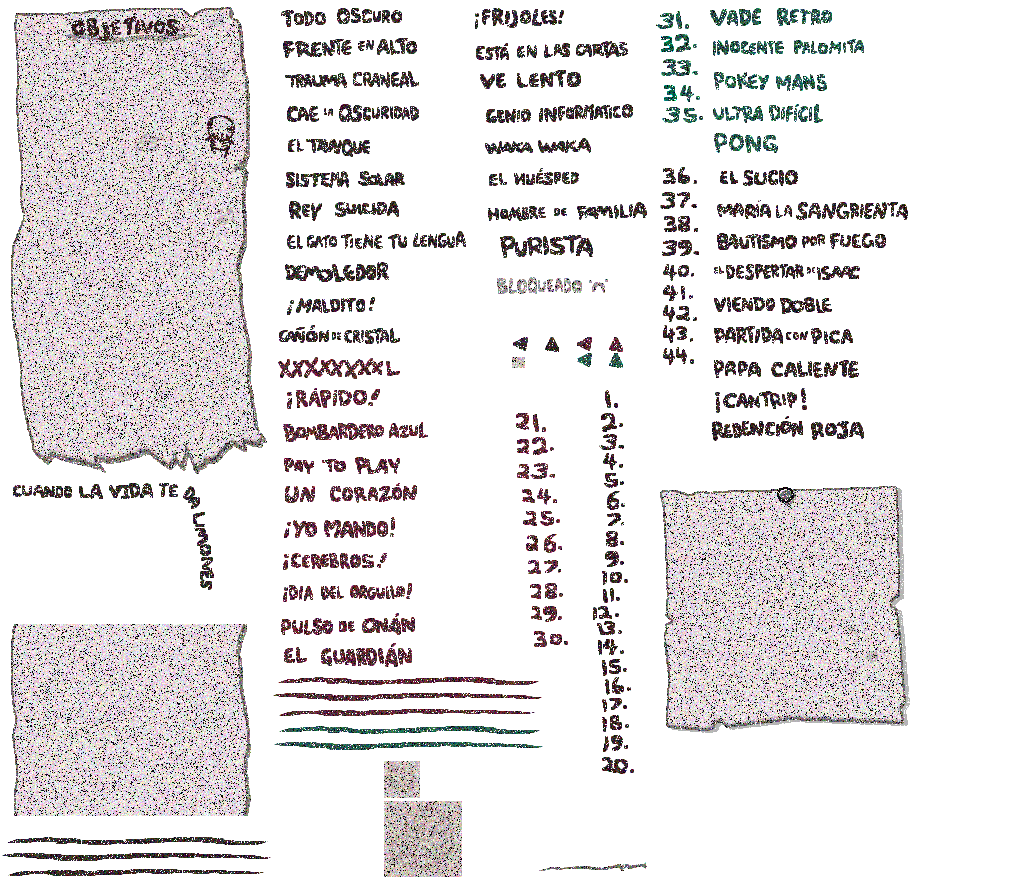 OBJETIVOS
CUANDO LA VIDA TE DA LIMONES
TODO OSCURO
FRENTE EN ALTO
TRAUMA CRANEAL
CAE LA OSCURIDAD
EL TANQUE
SISTEMA SOLAR
REY SUICIDA
EL GATO TIENE TU LENGUA
DEMOLEDOR
¡MALDITO!
CAÑÓN DE CRISTAL
XXXXXXXXL
¡RÁPIDO!
BOMBARDERO AZUL
PAY TO PLAY
UN CORAZÓN
¡YO MANDO!
¡CEREBROS!
¡DIA DEL ORGULLO!
PULSO DE ONÁN
EL GUARDIÁN
¡FRIJOLES!
ESTÁ EN LAS CARTAS
VE LENTO
GENIO INFORMÁTICO
WAKA WAKA
EL HUÉSPED
HOMBRE DE FAMILIA
PURISTA
BLOQUEADO "M"
21.
22.
23.
24.
25.
26.
27.
28.
29.
30.
1.
2.
3.
4.
5.
6.
7.
8.
9.
10.
11.
12.
13.
14.
15.
16.
17.
18.
19.
20.
31.
32.
33.
34.
35.
36.
37.
38.
39.
40.
41.
42.
43.
44.
VADE RETRO
INOCENTE PALOMITA
POKEY MANS
ULTRA DIFÍCIL
PONG
EL SUCIO
MARÍA LA SANGRIENTA
BAUTISMO POR FUEGO
EL DESPERTAR DE ISAAC
VIENDO DOBLE
PARTIDA CON PICA
PAPA CALIENTE
¡CANTRIP!
REDENCIÓN ROJA